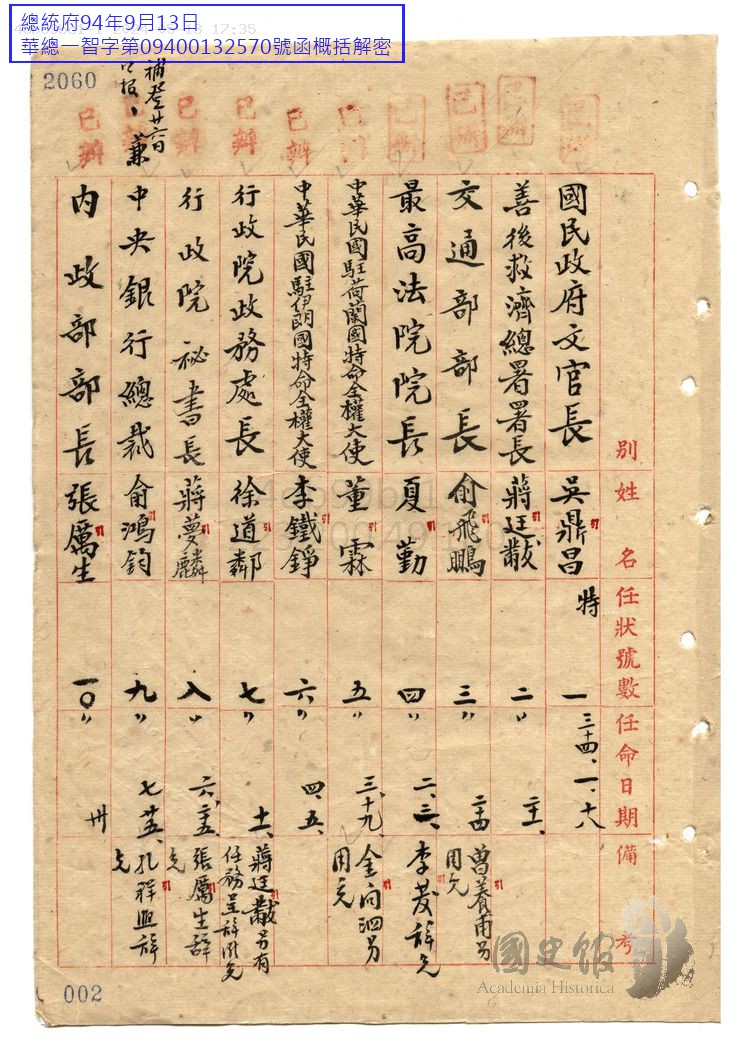 總統府94年9月13日
華總一智字第09400132570號函概括解密
2060
別 姓名 任狀號數 任命日期 備考
國民政府文官長 吳鼎昌 特 一 三十四、一、十八
善後救濟總署署長 蔣廷黻 二〃
交通部部長 俞飛鵬 三〃 曾養甫另有任用免
最高法院院長 夏勤 四〃 二、三、 李茇辭免
中華民國駐荷蘭國特命全權大使 董霖 五〃 三、十九、 金問泗另用免
中華民國駐伊朗國特命全權大使 李鐵錚 六〃 四、五、
行政院政務處長 徐道鄰 七〃 蔣廷黻另有任務呈辭准免
行政院秘書長 蔣夢麟 八〃 張厲生辭免
兼中央銀行總裁 俞鴻鈞 九〃 孔祥熙辭免
內政部部長 張厲生 一〇〃 卅
已辦 已辦 已辦 已辦 已辦
002
國史館
Academia Historica